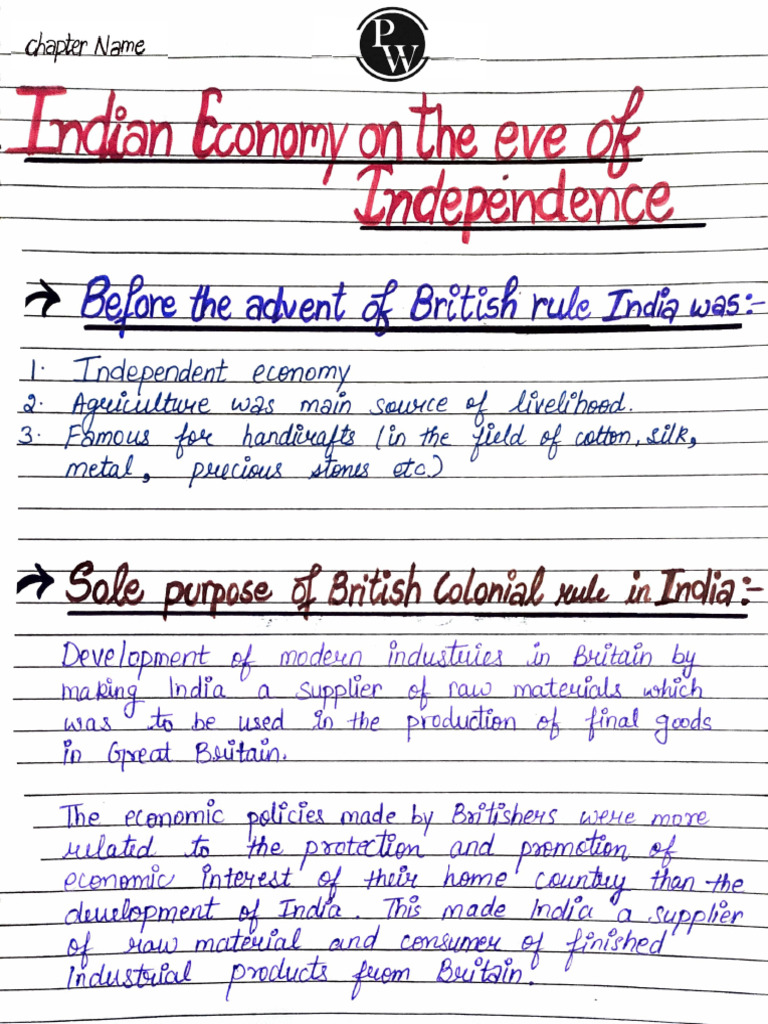 Chapter Name
PW
Indian Economy on the eve of
Independence
→ Before the advent of British rule India was:-
1. Independent economy
2. Agriculture was main source of livelihood.
3. Famous for handicrafts (in the field of cotton, silk,
metal, precious stones etc.)
→ Sole purpose of British Colonial rule in India:-
Development of modern industries in Britain by
making India a supplier of raw materials which
was to be used in the production of final goods
in Great Britain.
The economic policies made by Britishers were more
related to the protection and promotion of
economic interest of their home country than the
development of India. This made India a supplier
of raw material and consumer of finished
industrial products from Britain.